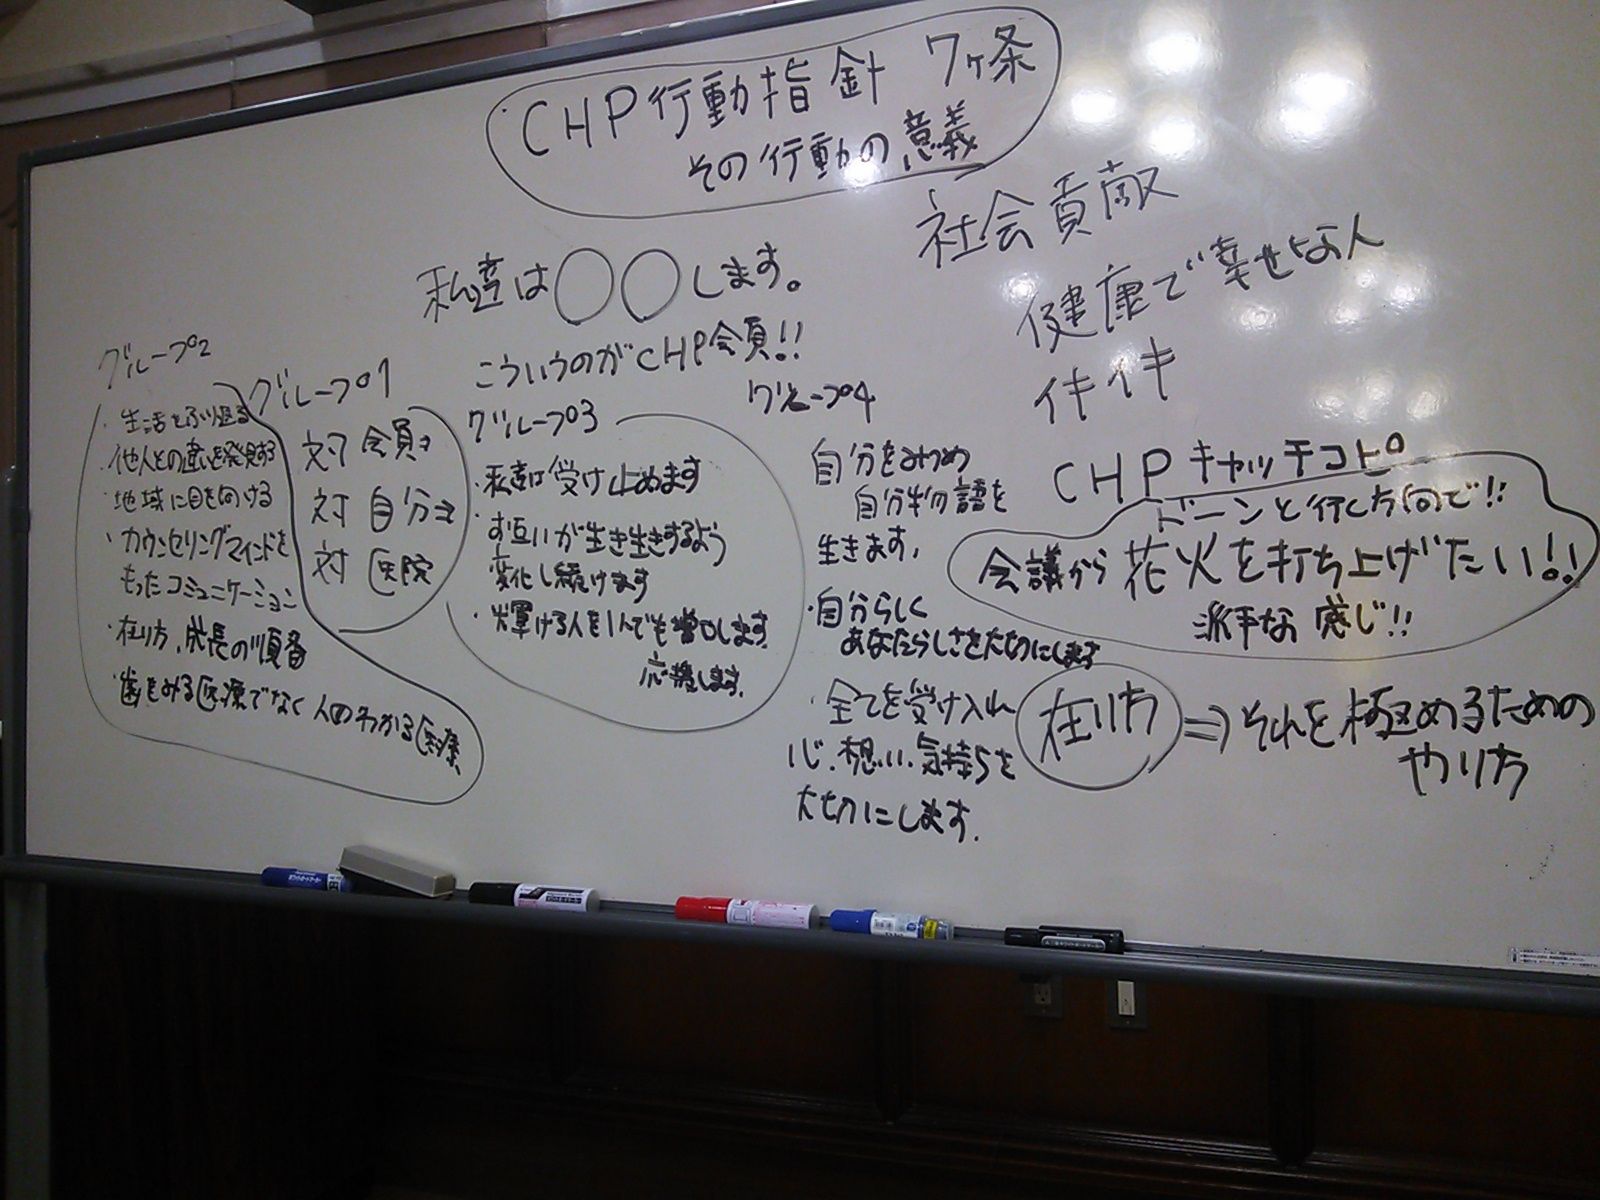 CHP行動指針 7ヶ条
その行動の意義
社会貢献
健康で幸せな人
イキイキ
私達は〇〇します。
こういうのがCHP会員!!
グループ2
・生活をふり返る
・他人との違いを発見する
・地域に目を向ける
・カウンセリングマインドを
もったコミュニケーション
・在り方、成長の順番
・歯をみる医療でなく人のわかる医療、
グループ1
対 会員
対 自分
対 医院
グループ3
・私達は受け止めます
・お互いが生き生きするよう
変化し続けます
・輝ける人を1人でも増やします。
応援します。
グループ4
自分をみつめ
自分物語を
生きます。
・自分らしく
あなたらしさを大切にします
・全てを受け入れ
心、想い、気持ちを
大切にします。
CHPキャッチコピー
ドーンと行く方向で!!
会議から花火を打ち上げたい!!
派手な感じ!!
在り方⇒それを極めるための
やり方